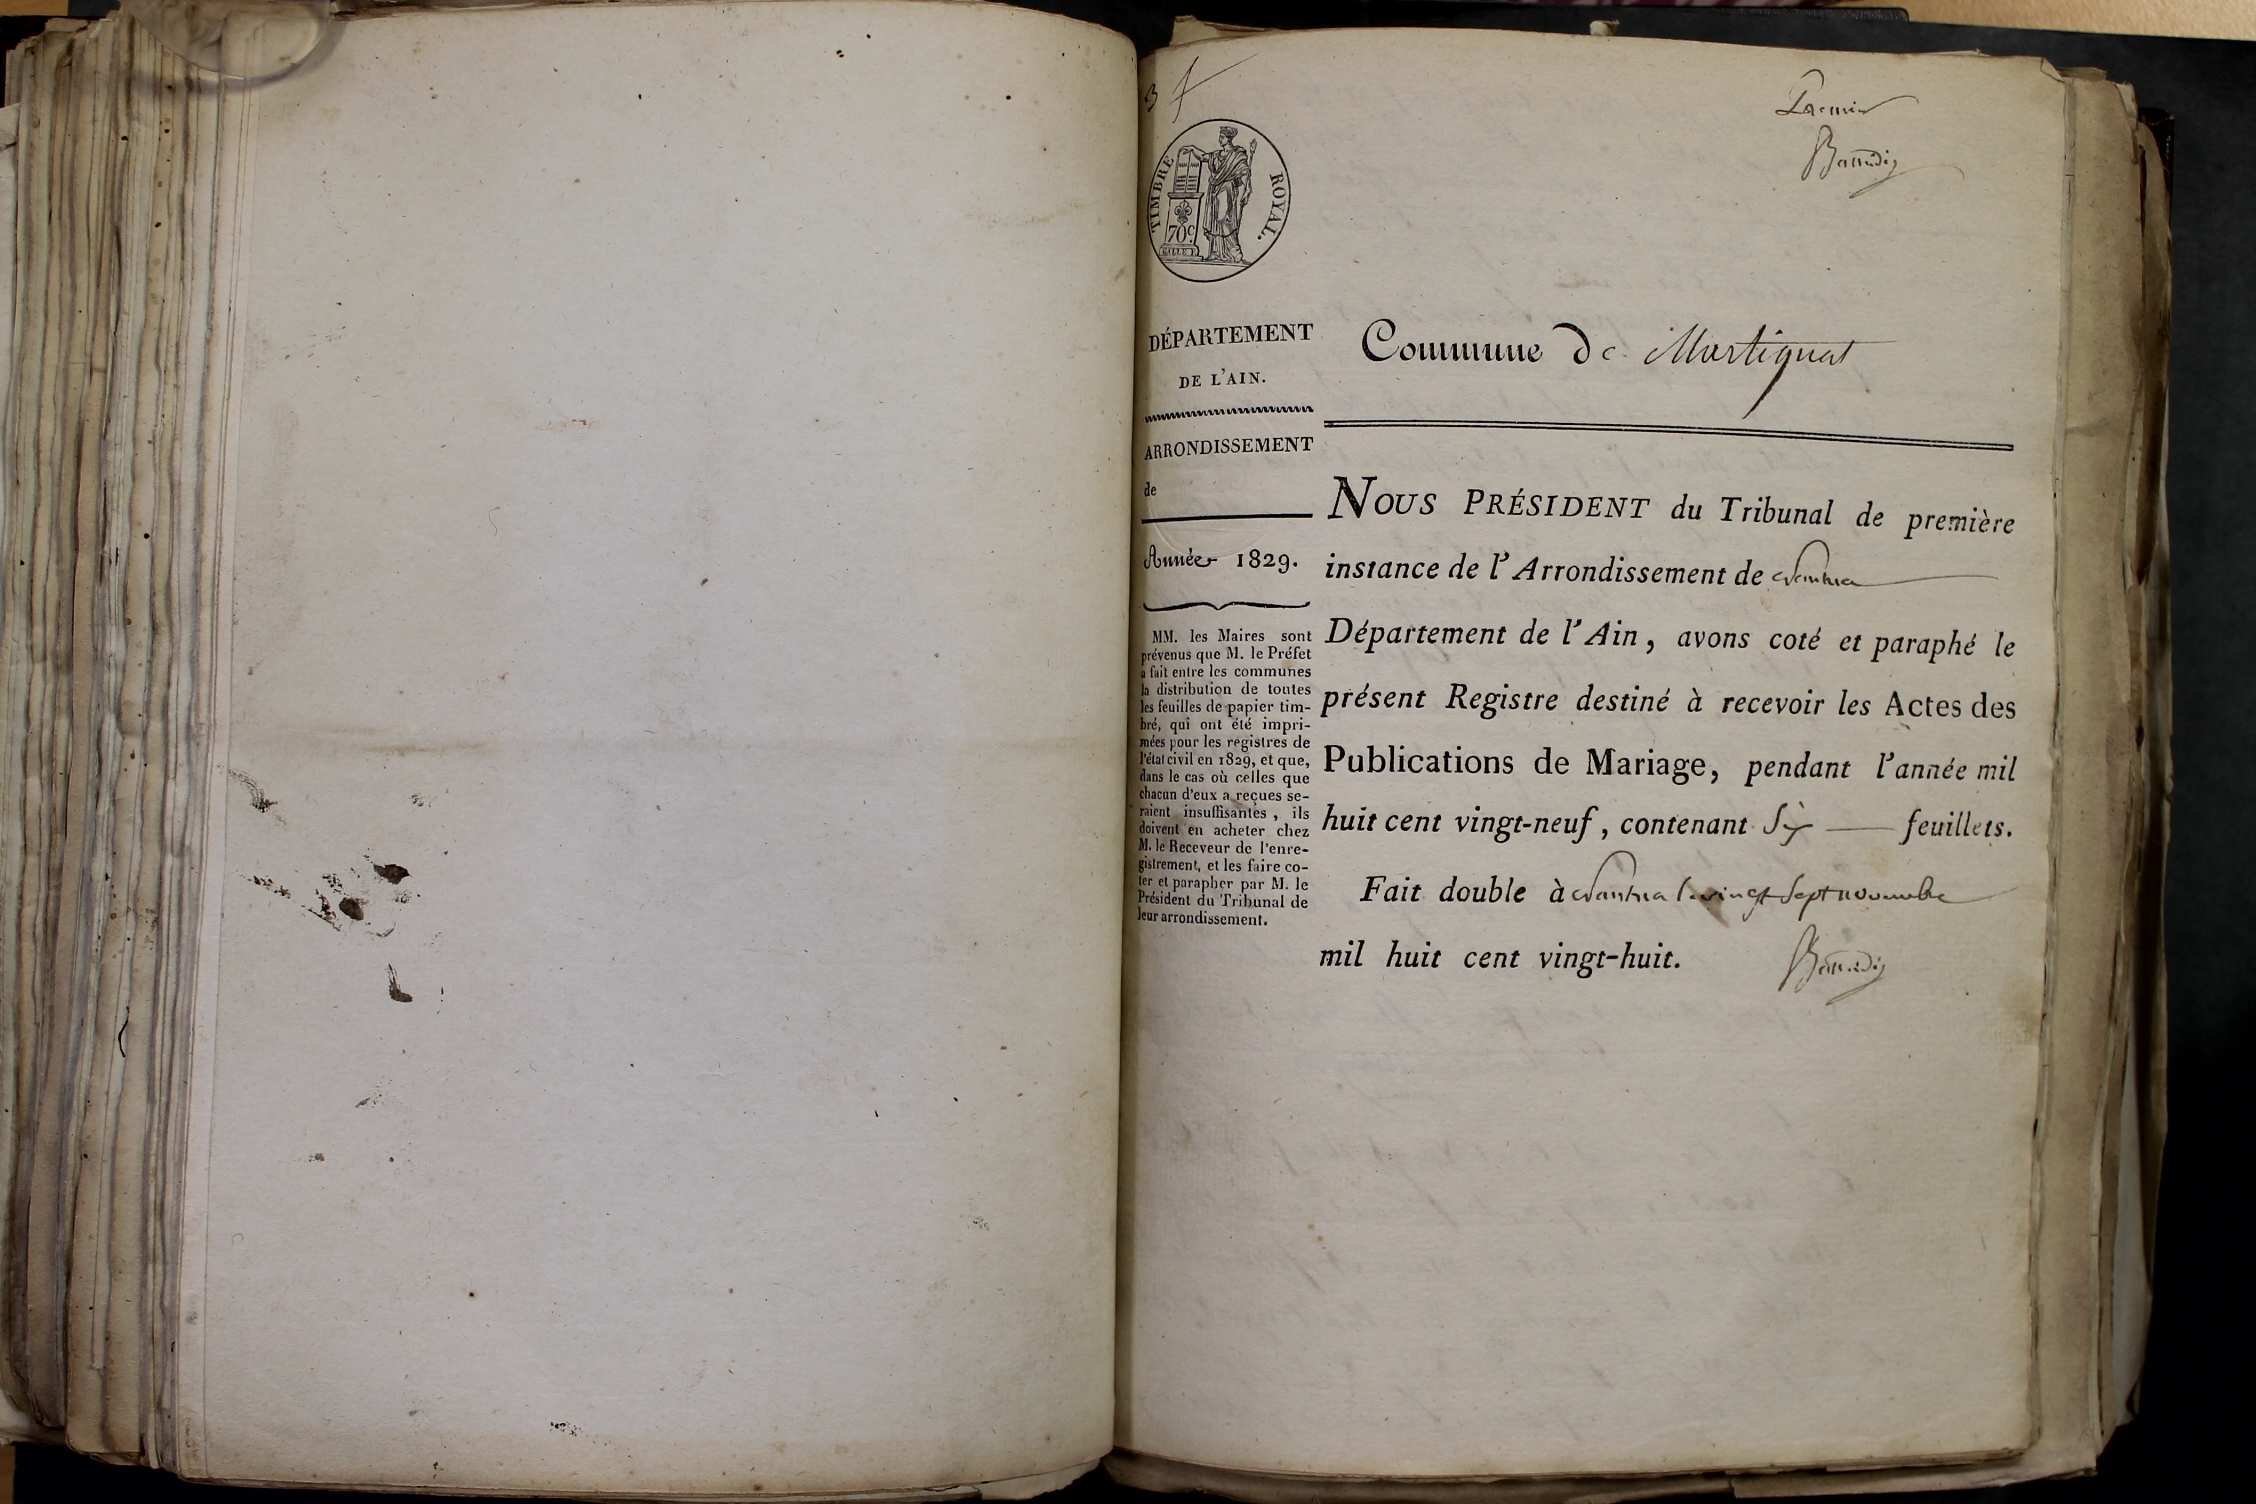 3
TIMBRE ROYAL.
70c
DÉPARTEMENT
DE L'AIN.
ARRONDISSEMENT
de
Année 1829.
MM. les Maires sont
prévenus que M. le Préfet
a fait entre les communes
la distribution de toutes
les feuilles de papier tim-
bré, qui ont été impri-
mées pour les registres de
l'état civil en 1829, et que,
dans le cas où celles que
chacun d'eux a reçues se-
raient insuffisantes, ils
doivent en acheter chez
M. le Receveur de l'enre-
gistrement, et les faire co-
ter et parapher par M. le
Président du Tribunal de
leur arrondissement.
Commune de Martignat
NOUS PRÉSIDENT du Tribunal de première
instance de l'Arrondissement de Nantua
Département de l'Ain, avons coté et paraphé le
présent Registre destiné à recevoir les Actes des
Publications de Mariage, pendant l'année mil
huit cent vingt-neuf, contenant Six feuillets.
Fait double à Nantua le vingt Sept novembre
mil huit cent vingt-huit.